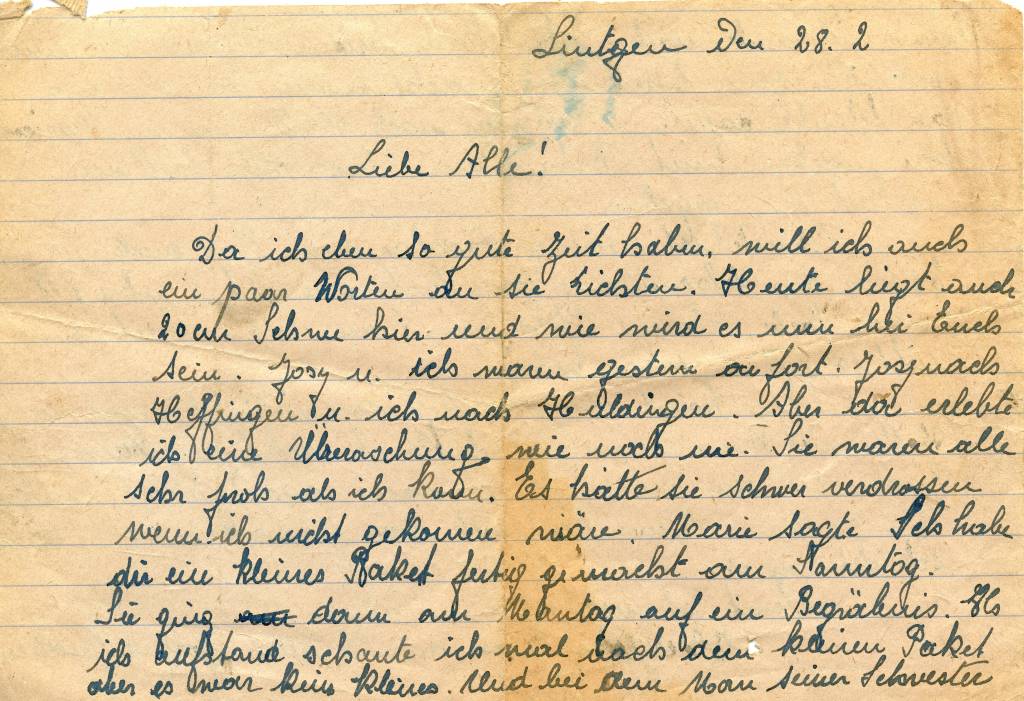 Lintgen den 28. 2
Liebe Alle!
Da ich eben so gute Zeit haben, will ich auch
ein paar Worten an sie richten. Heute liegt auch
20cm Schnee hier und wie wird es nun bei Euch
sein. Josy u. ich waren gestern a fort. Josy nach
Heffingen u. ich nach Huldingen. Aber da erlebte
ich eine Überaschung wie noch nie. Sie waren alle
sehr froh als ich kam. Es hätte sie schwer verdrossen
wenn ich nicht gekomen wäre. Marie sagte Ich habe
dir ein kleines Paket fertig gemacht am Sonntag.
Sie ging dann am Montag auf ein Begräbnis. Als
ich aufstand schaute ich mal nach dem kleinen Paket
aber es war kein kleines. Und bei dem Man seiner Schwester